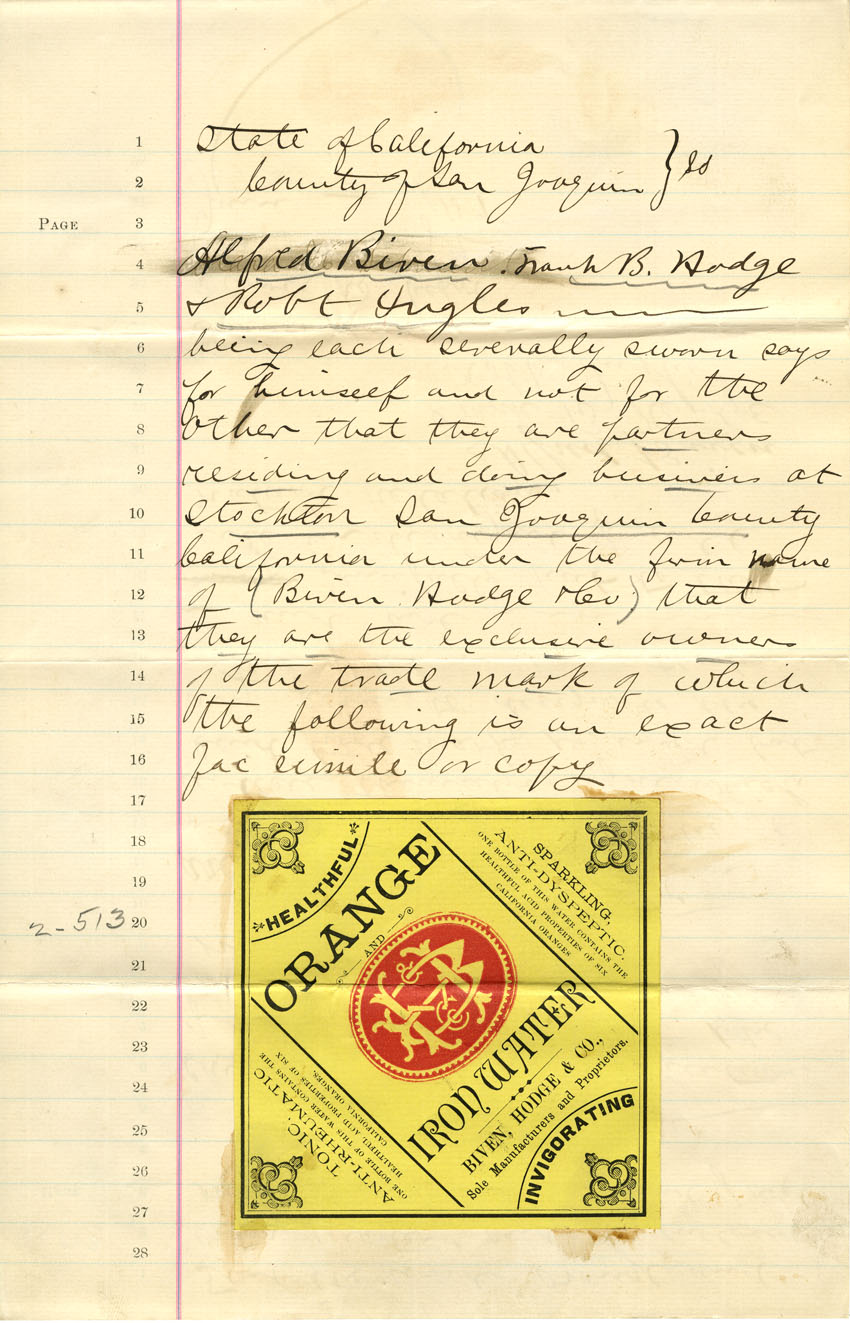 State of California } ss
County of San Joaquin
PAGE
Alfred Biven, Frank B. Hodge
& Robt Ingles
being each severally sworn says
for himself and not for the
other that they are partners
residing and doing business at
Stockton San Joaquin County
California under the firm name
of (Biven Hodge & Co) that
they are the exclusive owners
of the trade mark of which
the following is an exact
fac simile or copy
2-513
1
2
3
4
5
6
7
8
9
10
11
12
13
14
15
16
17
18
19
20
21
22
23
24
25
26
27
28
HEALTHFUL
ORANGE
AND
IRON WATER
BIVEN, HODGE & CO.,
Sole Manufacturers and Proprietors.
INVIGORATING
SPARKLING,
ANTI-DYSPEPTIC.
ONE BOTTLE OF THIS WATER CONTAINS THE
HEALTHFUL ACID PROPERTIES OF SIX
CALIFORNIA ORANGES
TONIC,
ANTI-RHEUMATIC
ONE BOTTLE OF THIS WATER CONTAINS THE
HEALTHFUL ACID PROPERTIES OF SIX
CALIFORNIA ORANGES.